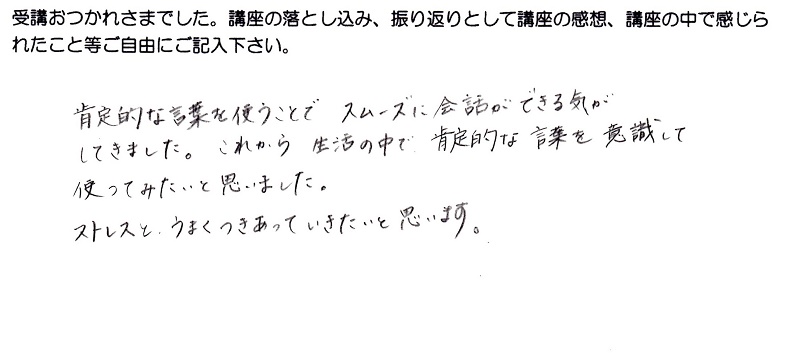 受講おつかれさまでした。講座の落とし込み、振り返りとして講座の感想、講座の中で感じら
れたこと等ご自由にご記入下さい。
肯定的な言葉を使うことで スムーズに会話ができる気が
してきました。これから 生活の中で 肯定的な言葉を意識して
使ってみたいと思いました。
ストレスと、うまくつきあっていきたいと思います。